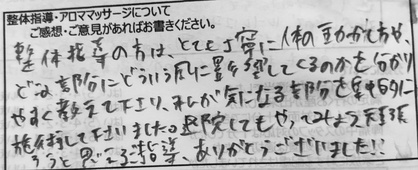 整体指導・アロマッサージについて
ご感想・ご意見があればお書きください。
整体指導の方は、とても丁寧に人体の動かし方や、
どの部分にどういう風に影響してくるのかを分かり
やすく教えて下さり、私が気になる部分を重点的に
施術して下さいました。退院してもやってみよう、頑張
ろうと思えるご指導、ありがとうございました!!